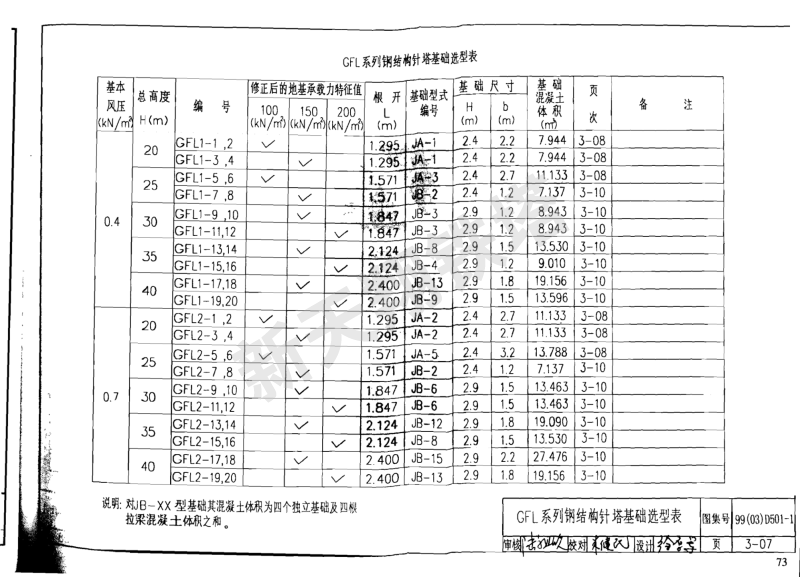 GFL系列钢结构针塔基础选型表
基本风压(kN/㎡) 总高度H(m) 编 号 修正后的地基承载力特征值 根 开L(m) 基础型式编号 基 础 尺 寸 基 础混凝土体 积(㎥) 页次 备 注
100(kN/㎡) 150(kN/㎡) 200(kN/㎡) H(m) b(m)
0.4 20 GFL1-1 ,2 ✓ 1.295 JA-1 2.4 2.2 7.944 3-08
GFL1-3 ,4 ✓ 1.295 JA-1 2.4 2.2 7.944 3-08
25 GFL1-5 ,6 ✓ 1.571 JA-3 2.4 2.7 11.133 3-08
GFL1-7 ,8 ✓ 1.571 JB-2 2.4 1.2 7.137 3-10
30 GFL1-9 ,10 ✓ 1.847 JB-3 2.9 1.2 8.943 3-10
GFL1-11,12 ✓ 1.847 JB-3 2.9 1.2 8.943 3-10
35 GFL1-13,14 ✓ 2.124 JB-8 2.9 1.5 13.530 3-10
GFL1-15,16 ✓ 2.124 JB-4 2.9 1.2 9.010 3-10
40 GFL1-17,18 ✓ 2.400 JB-13 2.9 1.8 19.156 3-10
GFL1-19,20 ✓ 2.400 JB-9 2.9 1.5 13.596 3-10
0.7 20 GFL2-1 ,2 ✓ 1.295 JA-2 2.4 2.7 11.133 3-08
GFL2-3 ,4 ✓ 1.295 JA-2 2.4 2.7 11.133 3-08
25 GFL2-5 ,6 ✓ 1.571 JA-5 2.4 3.2 13.788 3-08
GFL2-7 ,8 ✓ 1.571 JB-2 2.4 1.2 7.137 3-10
30 GFL2-9 ,10 ✓ 1.847 JB-6 2.9 1.5 13.463 3-10
GFL2-11,12 ✓ 1.847 JB-6 2.9 1.5 13.463 3-10
35 GFL2-13,14 ✓ 2.124 JB-12 2.9 1.8 19.090 3-10
GFL2-15,16 ✓ 2.124 JB-8 2.9 1.5 13.530 3-10
40 GFL2-17,18 ✓ 2.400 JB-15 2.9 2.2 27.476 3-10
GFL2-19,20 ✓ 2.400 JB-13 2.9 1.8 19.156 3-10
说明: 对JB-XX 型基础其混凝土体积为四个独立基础及四根
拉梁混凝土体积之和。
GFL系列钢结构针塔基础选型表 图集号 99(03)D501-1
审核 校对 设计 页 3-07
73